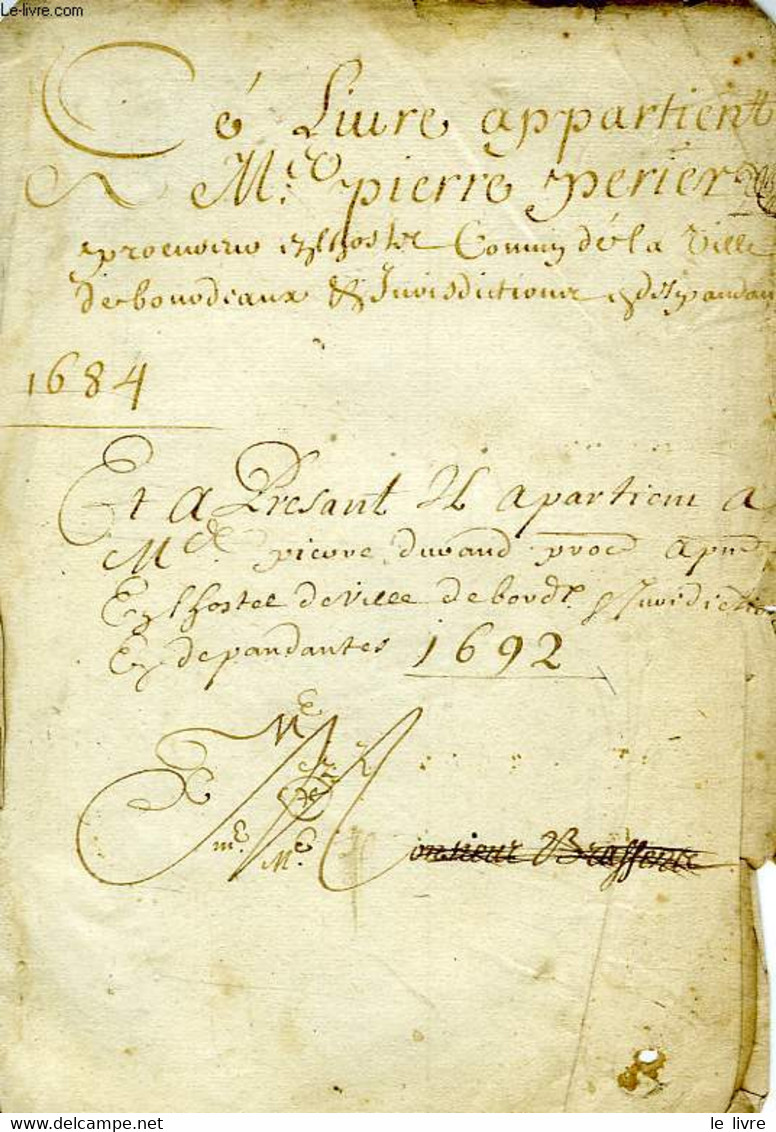 Le-livre.com
Cé Liure appartient
M.e pierre perier
procureur en lhostel Commun dé la Ville
de bourdeaux & Jurisdictions en despandan
1684
Et a Presant Il apartient a
Me pierre durand proc
En lhostel de Ville de bord.x & Juridiction
En depandantes 1692
Me
me. Me
Monsieur
le livre